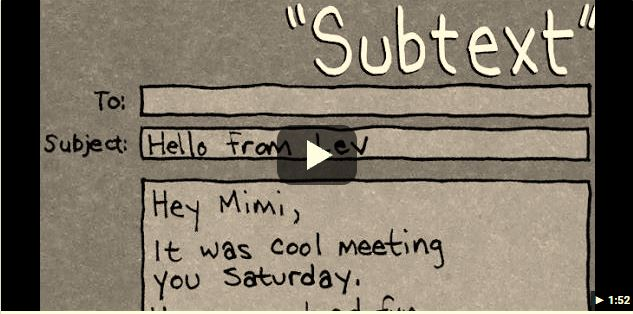 "Subtext"
To:
Subject: Hello From Lev
Hey Mimi,
It was cool meeting
you Saturday.
1:52